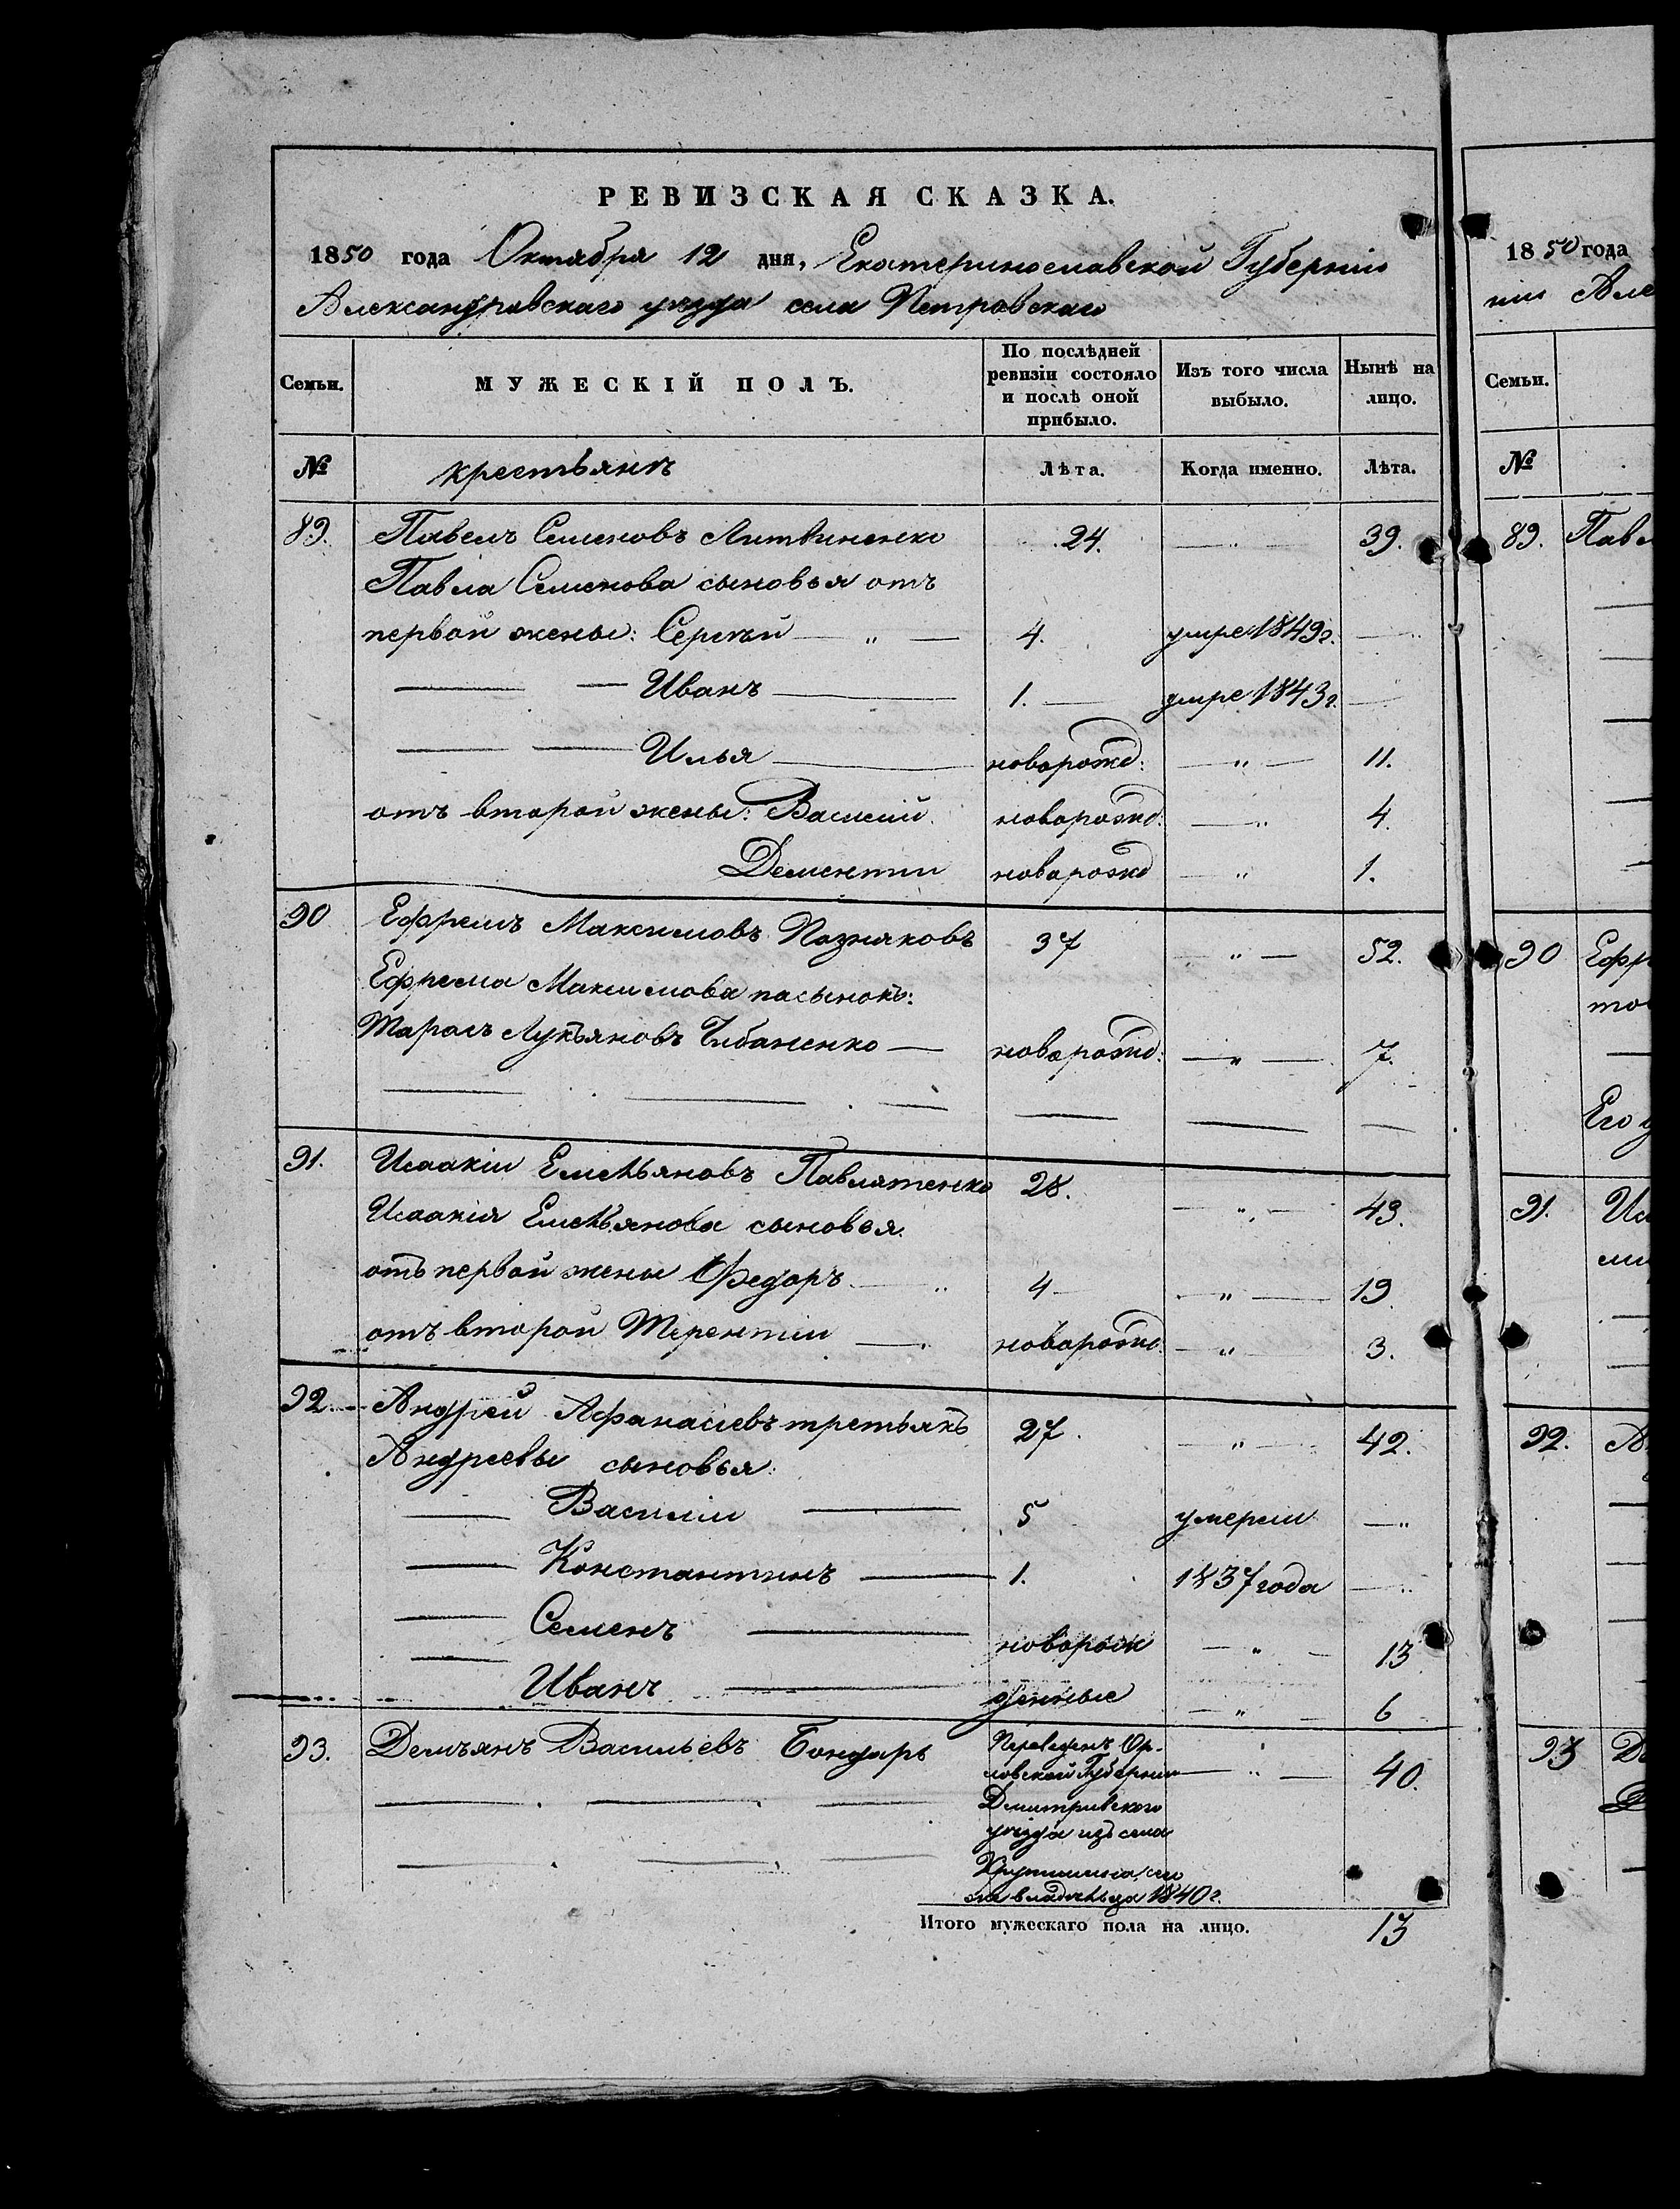 РЕВИЗСКАЯ СКАЗКА.
1850 года Октября 12 дня, Екатеринославской Губерніи
Александровскаго уезда села Петровскаго
Семьи.
МУЖЕСКІЙ ПОЛЪ.
По послѣдней ревизіи состояло и послѣ оной прибыло.
Изъ того числа выбыло.
Нынѣ на лицо.
№ крестьянъ Лѣта. Когда именно. Лѣта.
89. Павелъ Семеновъ Литвиненко 24. — " — 39.
Павла Семенова сыновья отъ
первой жены: Сергѣй — " — 4. умре 1849 г. — "
— — Иванъ — 1. — умре 1843 г. —
— — Илья — новорожд: — " — 11.
отъ второй жены: Василий новорожд: — " 4.
Дементий новорожд — " 1.
90 Ефремъ Максимовъ Позняковъ 37 — " — 52.
Ефрема Максимова пасынокъ:
Тарасъ Лукьяновъ Чибаненко — новорожд: — " — 7.
91. Исаакій Емельяновъ Павлятенко 28. — " — 43.
Исаакія Емельянова сыновья.
отъ первой жены Федоръ — " 4 — — " — 19.
отъ второй Терентій — новорожд. — " — 3.
92. Андрей Афанасіевъ третьякъ 27. — " — 42.
Андреевы сыновья:
— Василій — 5 умерли — "
— Константинъ — 1. 1837 года — "
— Семенъ — новорож — " — 13
— Иванъ — денные — " — 6
93. Демьянъ Васильевъ Бондарь Переведенъ Ор- — " — 40.
ловской Губерніи
Дмитривского
уезда изъ села
владельца 1840 г.
Итого мужескаго пола на лицо. 13
1850 года
ніи Але
Семьи.
№
89. Павл
90 Ефр
Его
91. Иса
92. Ан
93 Де